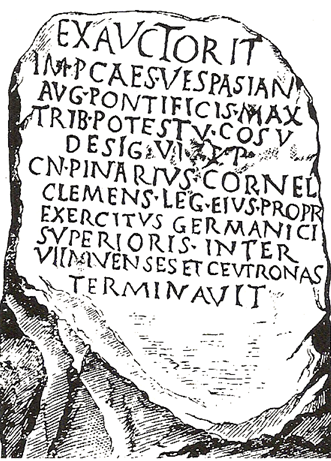 EX AVCTORIT
IMP·CAES·VESPASIAN
AVG·PONTIFICIS·MAX
TRIB·POTEST V·COS V
DESIG·VI P P
CN·PINARIVS·CORNEL
CLEMENS·LEG·EIVS·PROPR
EXERCITVS GERMANICI
SVPERIORIS·INTER
ET CEVTRONAS
TERMINAVIT